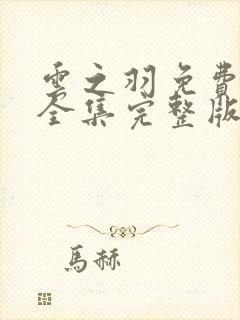 雲之羽免費
全集完整版
馬赫